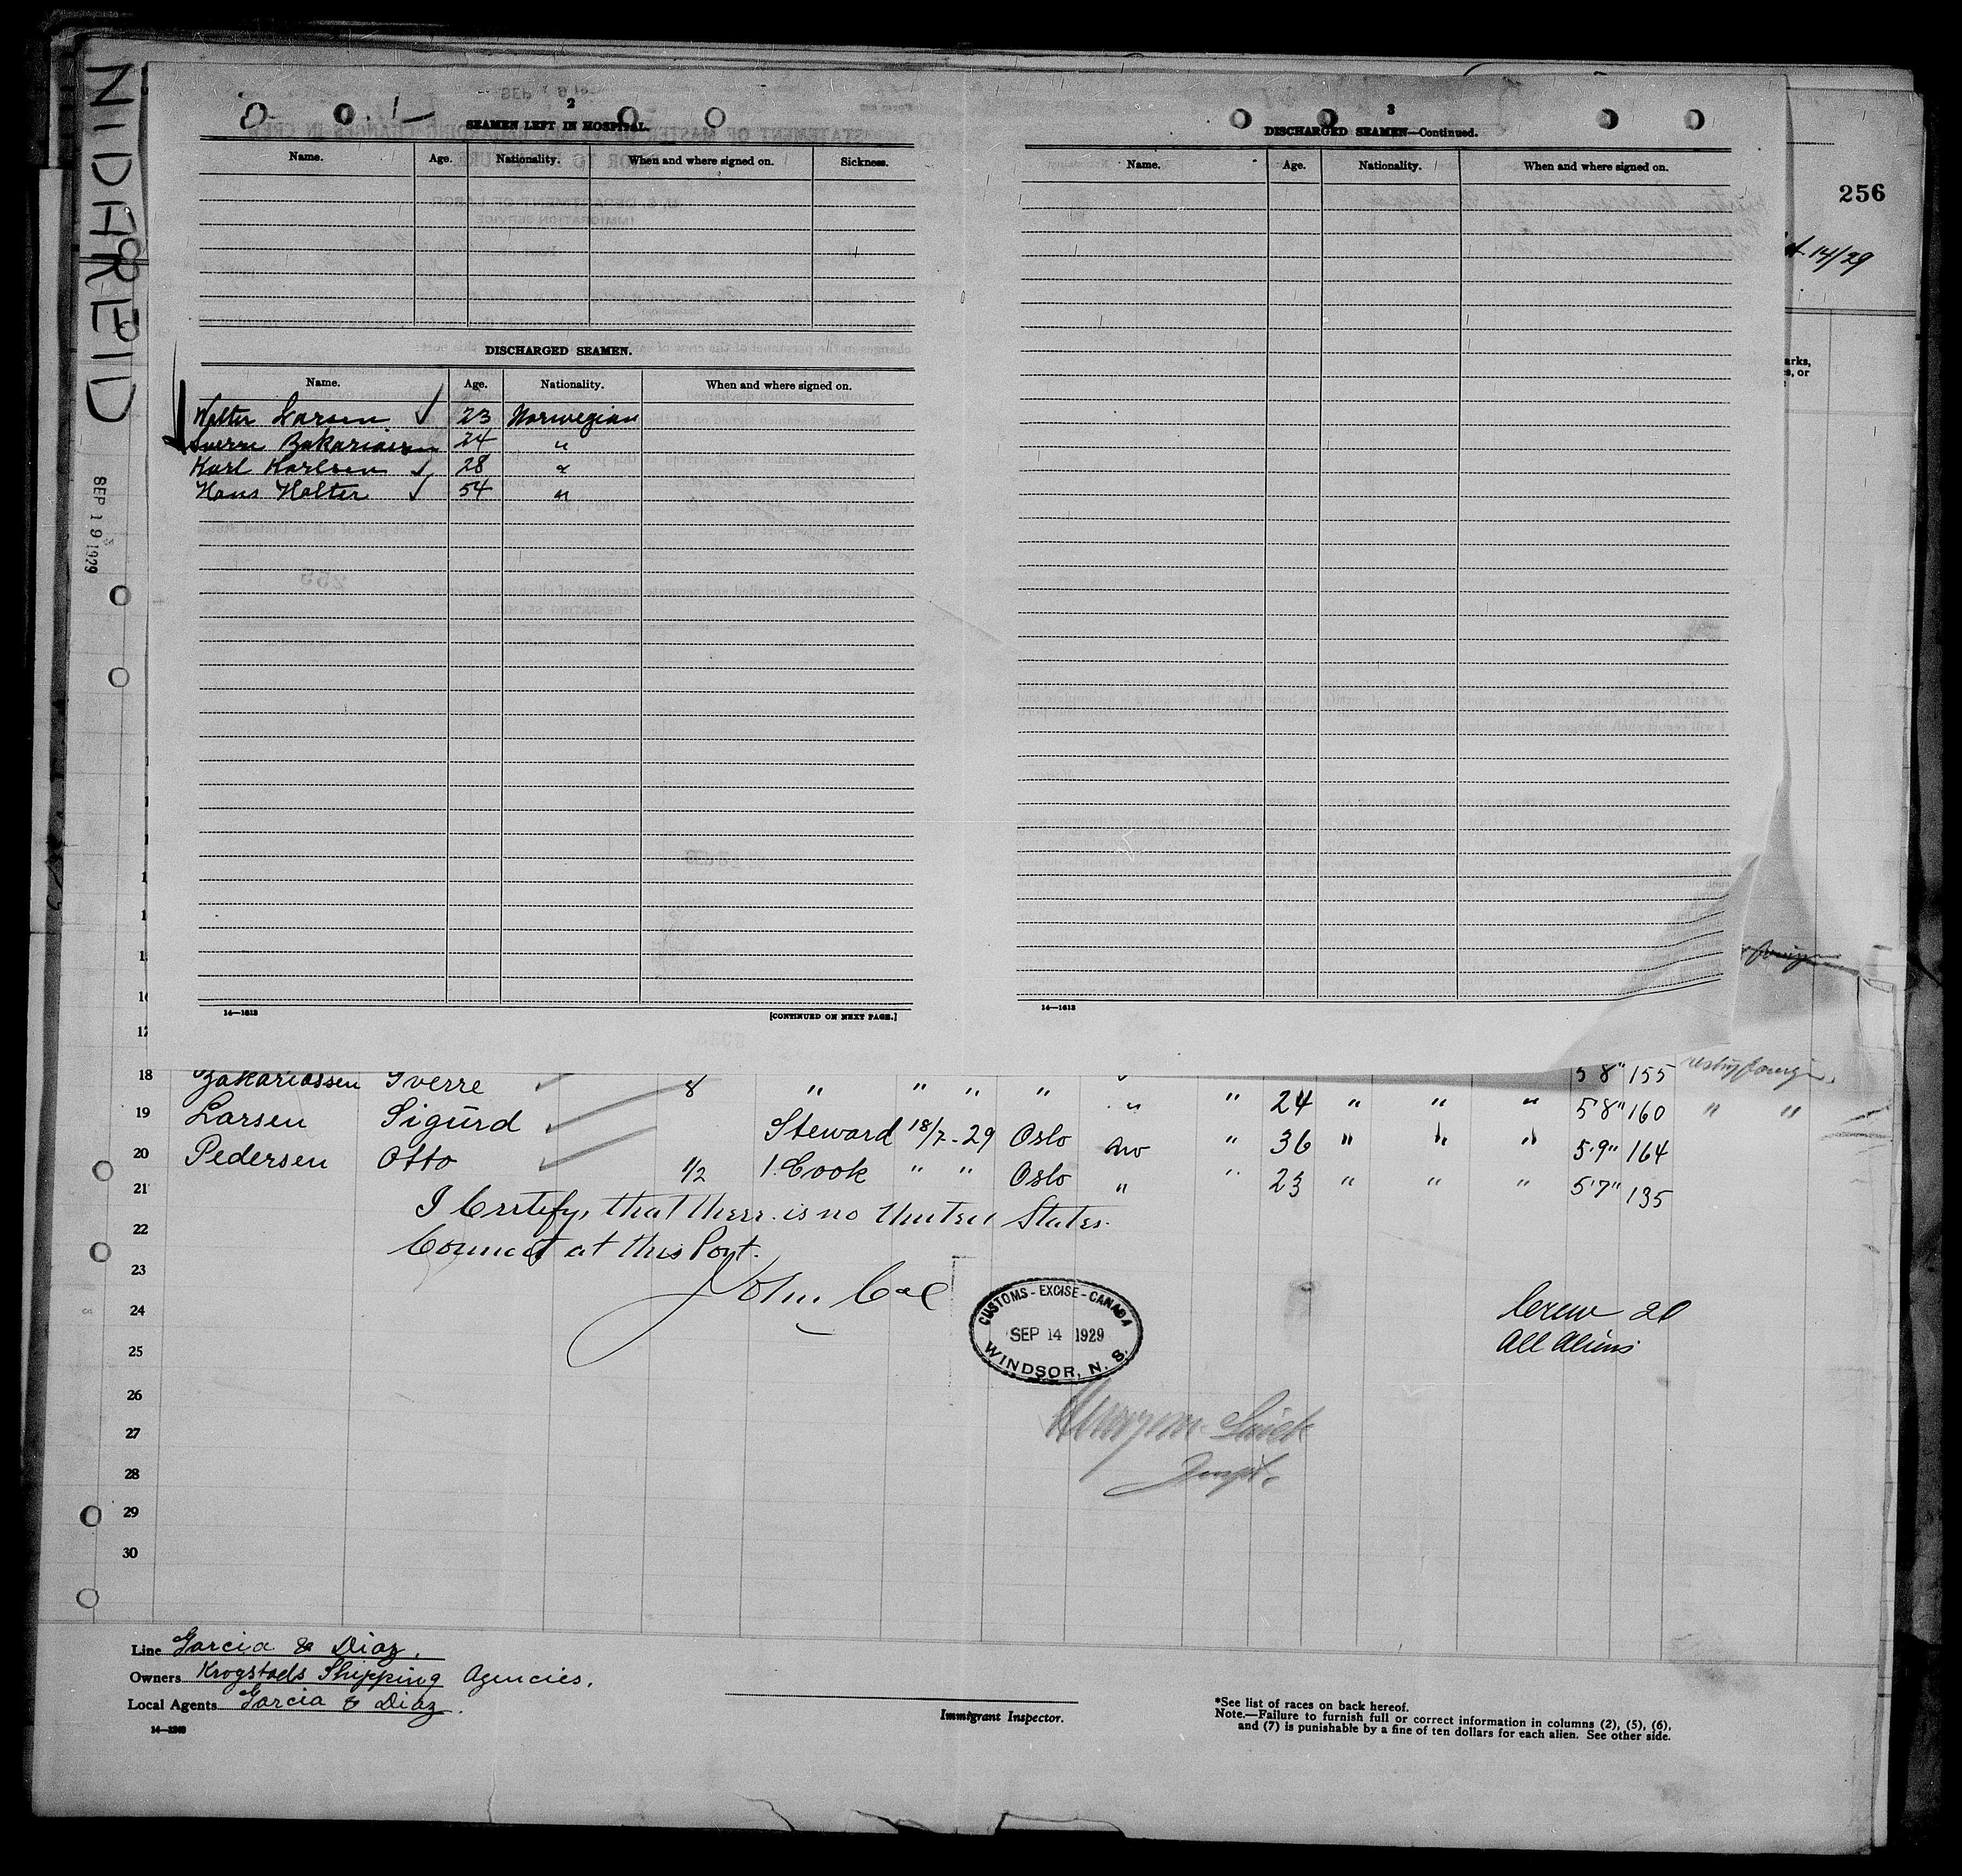 NIDHREID
SEP 19 1929
2
SEAMEN LEFT IN HOSPITAL.
Name. Age. Nationality. When and where signed on. Sickness.
DISCHARGED SEAMEN.
Name. Age. Nationality. When and where signed on.
Walter Larsen ✓ 23 Norwegian
Sverre Zakariassen 24 "
Karl Karlsen ✓ 28 "
Hans Halter ✓ 54 "
14—1613
[CONTINUED ON NEXT PAGE.]
3
DISCHARGED SEAMEN—Continued.
Name. Age. Nationality. When and where signed on.
14—1613
256
14/29
arks,
s, or
16
17
5 8" 155
18 Zakariassen Sverre ✓ 8 " " " " " " 24 " " " 5'8" 160 " "
19 Larsen Sigurd ✓ Steward 18/7-29 Oslo no " 36 " " " 5'9" 164
20 Pedersen Otto ✓ 1/2 1. Cook " " Oslo " " 23 " " " 5'7" 135
21 I Certify, that there is no United States
22 at this Port.
23 John
24
25
26
27
28
29
30
CUSTOMS-EXCISE-CANADA
SEP 14 1929
WINDSOR, N. S.
Crew 20
All Aliens
Line Garcia & Diaz.
Owners Krogstads Shipping Agencies.
Local Agents Garcia & Diaz.
14—1240
Immigrant Inspector.
*See list of races on back hereof.
Note.—Failure to furnish full or correct information in columns (2), (5), (6),
and (7) is punishable by a fine of ten dollars for each alien. See other side.